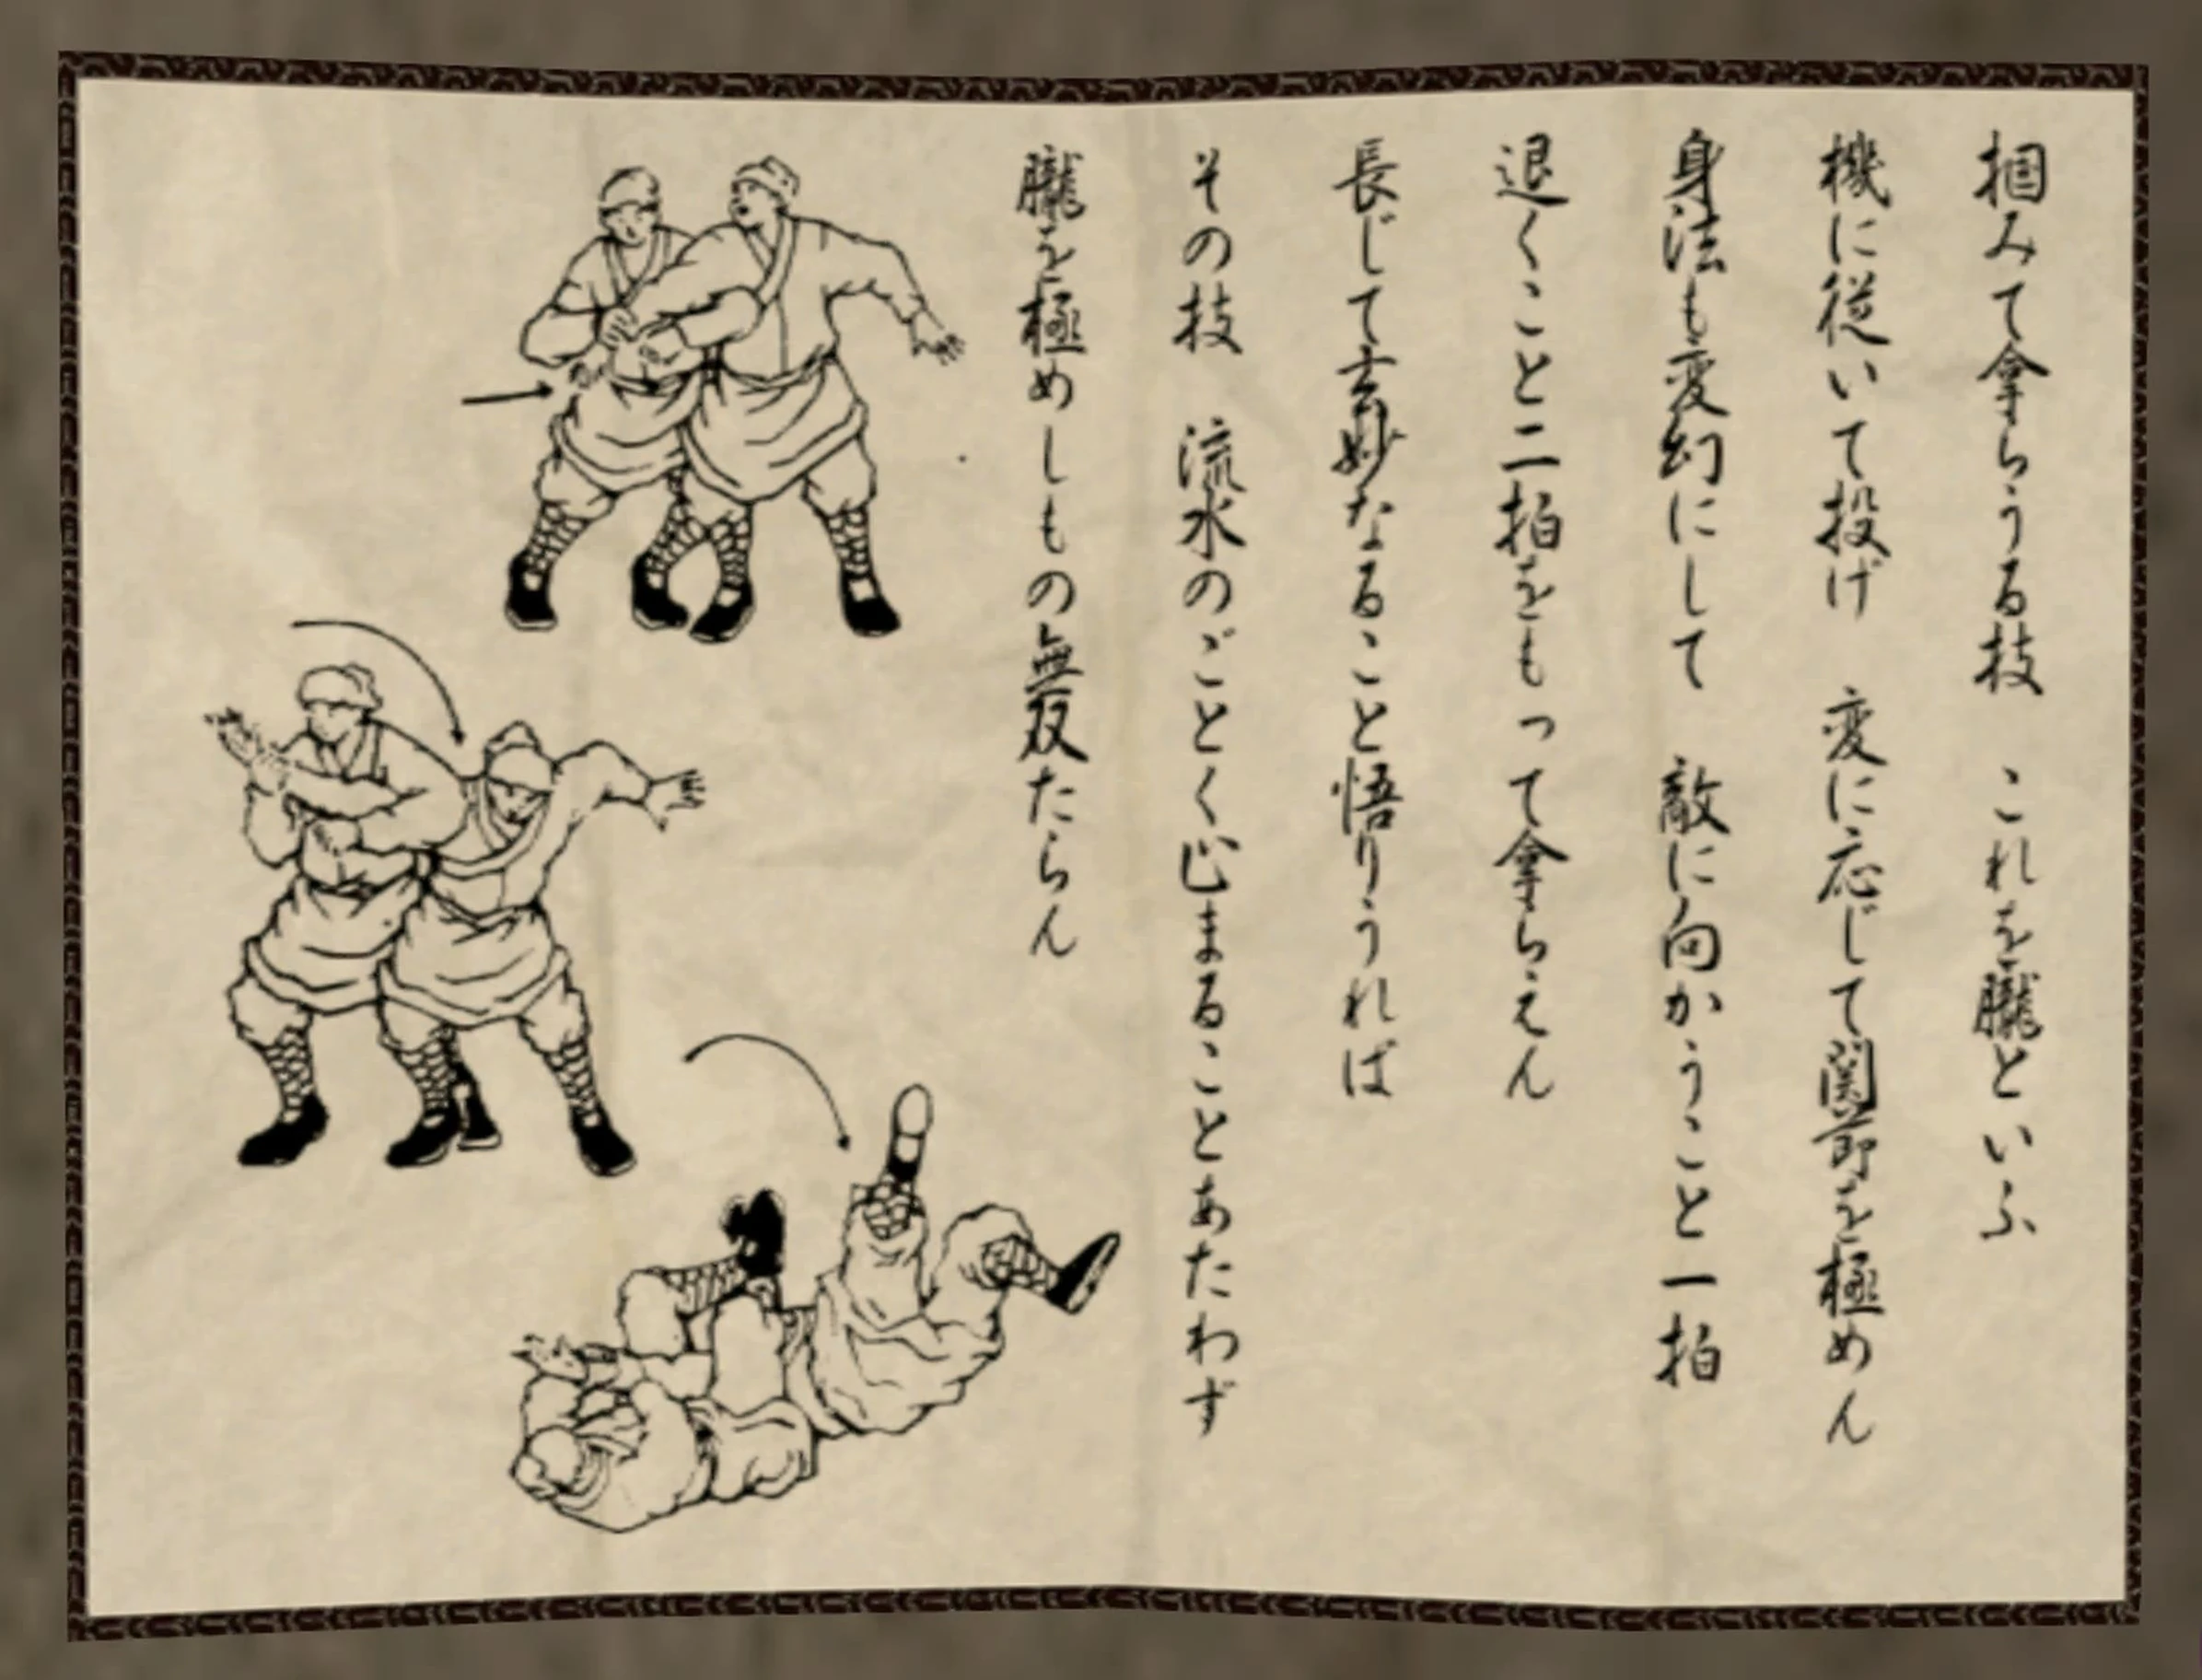 掴みて拿らうる技　これを朧といふ
機に従いて投げ　変に応じて関節を極めん
身法も変幻にして　敵に向かうこと一拍
退くこと二拍をもって拿らえん
長じて玄妙なること悟りうれば
その技　流水のごとく止まることあたわず
朧を極めしもの無双たらん